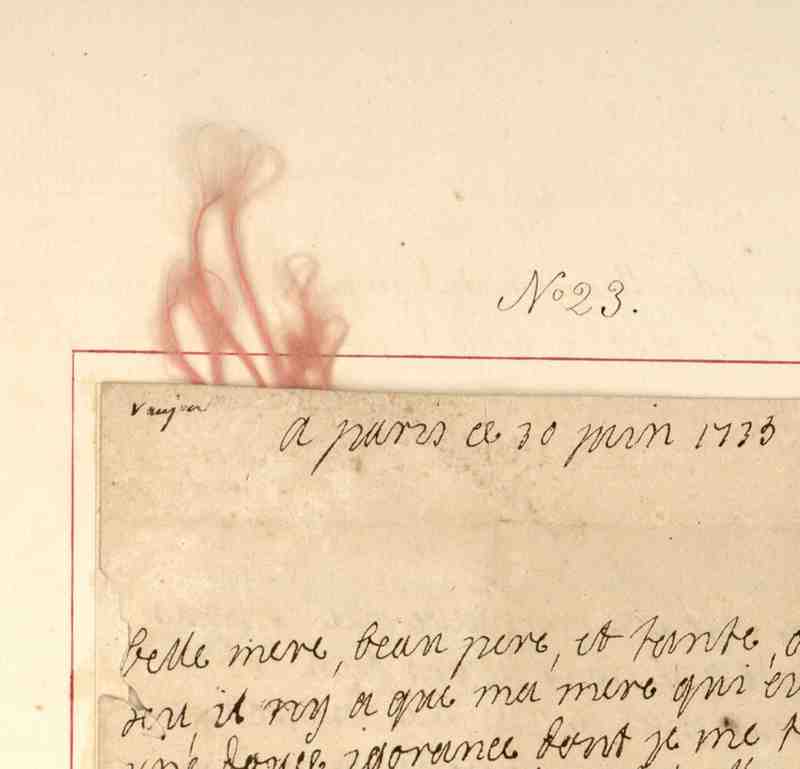 No 23.
a paris ce 30 juin 1733
belle mere, beau pere, et tante,
il n'y a que ma mere qui
une douce igorance dont je me